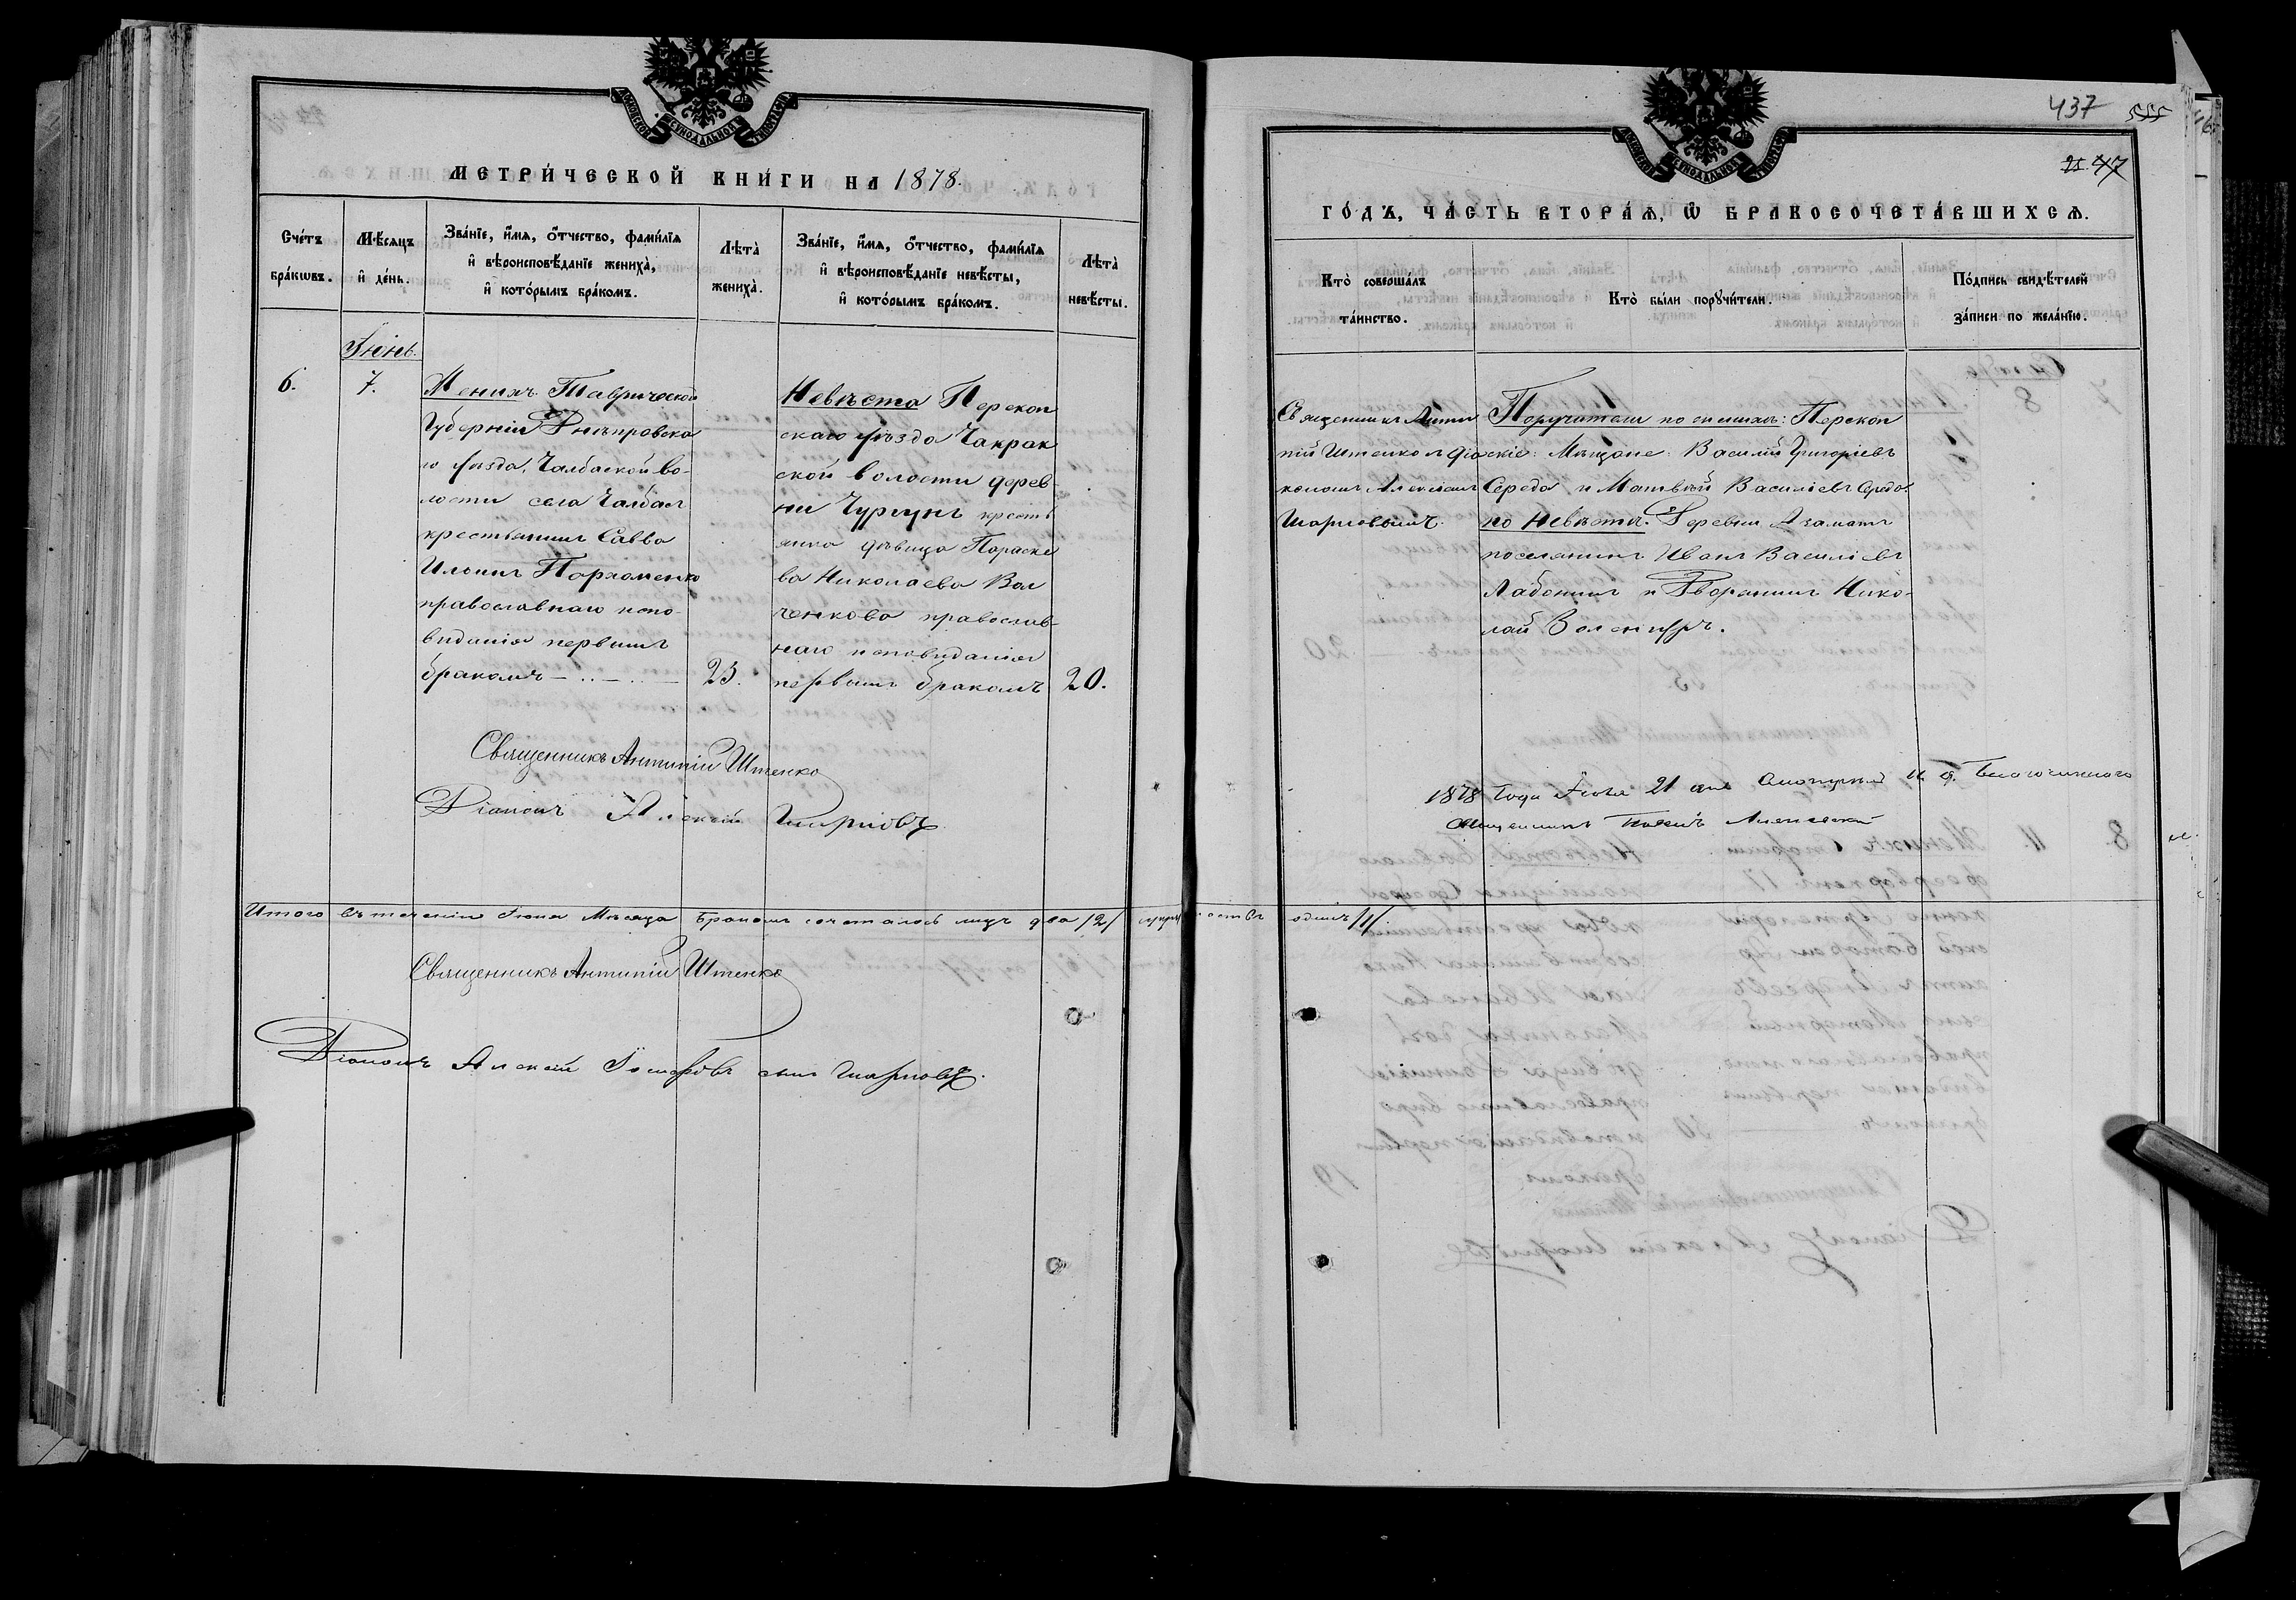 МЕТРИЧЕСКОЙ КНИГИ НА 1878.
Счетъ браковъ.
Мѣсяцъ и день.
Званіе, имя, отчество, фамилія и вѣроисповѣданіе жениха, и которымъ бракомъ.
Лѣта жениха.
Званіе, имя, отчество, фамилія и вѣроисповѣданіе невѣсты, и которымъ бракомъ.
Лѣта невѣсты.
Іюнь.
6.
7.
Женихъ Таврической
Губерніи Днѣпровска
го уѣзда, Чалбаской во-
лости села Чалбас
крестьянинъ Савва
Ильинъ Пархоменко
православнаго испо-
виданія первымъ
бракомъ
23.
Невѣста Перекоп
скаго уѣзда Чакрак
ской волости дерев
ни Чургунъ кресть
янка дѣвица Параске
ва Николаева Вол
ченкова православ-
наго исповиданія
первымъ бракомъ
20.
Священникъ Антипій Штенко
Діаконъ Алексій Шарковъ
Итого въ теченіи Іюня Мѣсяца бракомъ сочеталось лицъ два /2/ супружествъ одинъ /1/.
Священникъ Антипій Штенко
Діаконъ Алексій
437
555
47
ГОДЪ, ЧАСТЬ ВТОРАЯ, Ѡ БРАКОСОЧЕТАВШИХСЯ.
Кто совершалъ таинство.
Кто были поручители.
Подпись свидѣтелей записи по желанію.
Священникъ Анти
пій Штенко съ діа
кономъ Алексіемъ
Шарковымъ.
Поручители по женихѣ: Перекоп
скіе: Мѣщане: Василій Григоріевъ
Середа и Матвѣй Василіевъ Середа.
по невѣстѣ. Деревни Азаматъ
поселянинъ Иванъ Василіевъ
Лабонинъ и Дворянинъ Нико-
лай
1878 Года Іюля 21 дня Смотрѣлъ И. д. Благочиннаго
Священникъ